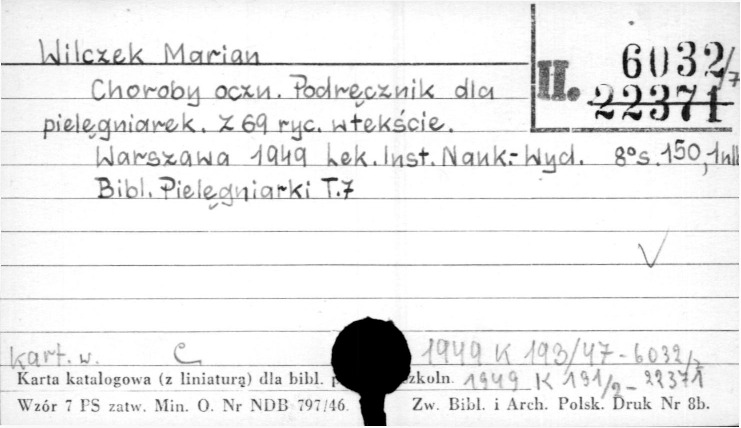 Wilczek Marian
II. 6032/7
22371
Choroby oczn. Podręcznik dla
pielęgniarek. Z 69 ryc. w tekście.
Warszawa 1949 Lek. Inst. Nauk.-Wyd. 8° s. 150, 1 nlb
Bibl. Pielęgniarki T. 7
kart. w. C 1949 K 193/47 - 6032/7
Karta katalogowa (z liniaturą) dla bibl. szkoln. 1949 K 191/2 - 22371
Wzór 7 PS zatw. Min. O. Nr NDB 797/46. Zw. Bibl. i Arch. Polsk. Druk Nr 8b.